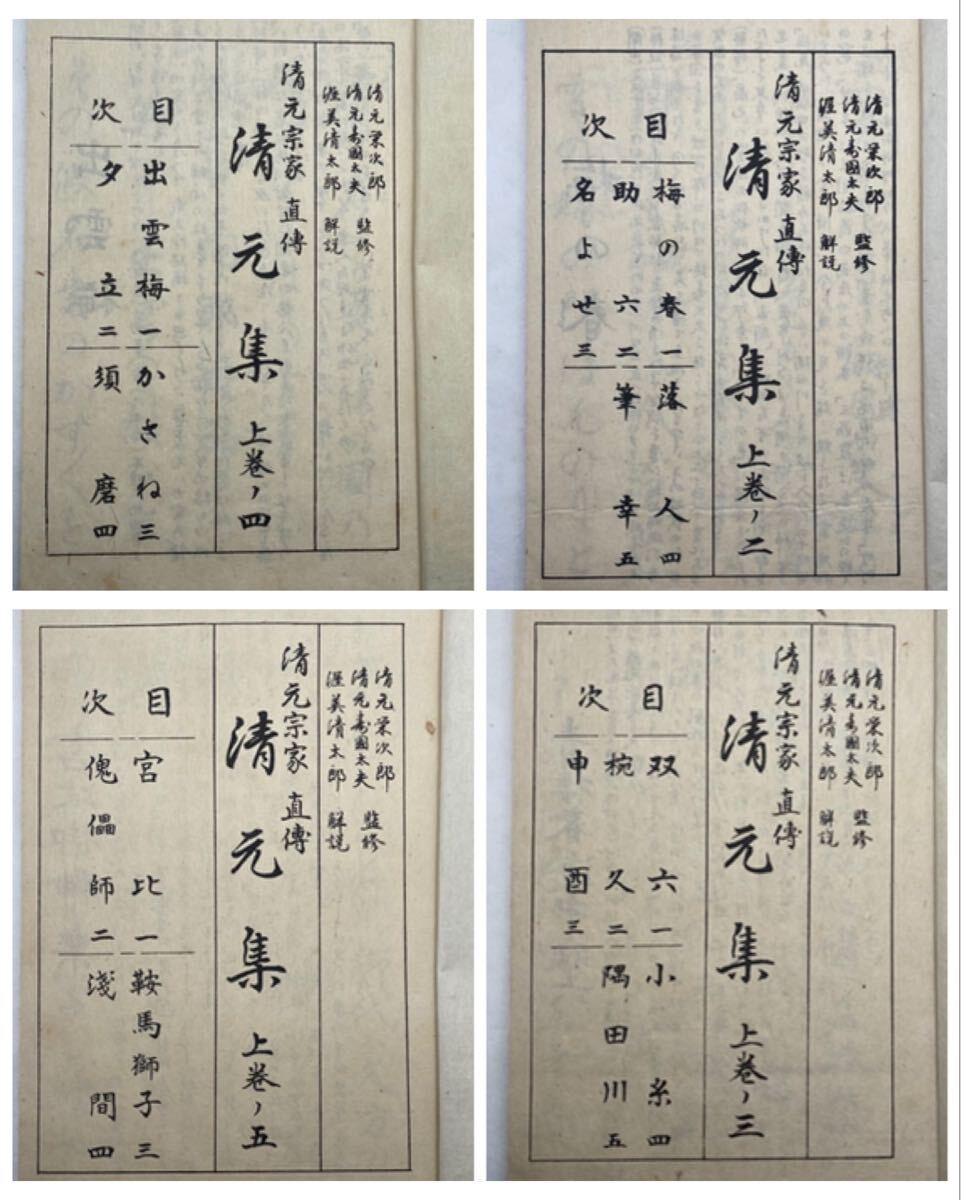 清元栄次郎
清元寿國太夫 監修
渥美清太郎 解説
清元宗家 直傳
清元集 上巻ノ四
目次
出雲梅 一
夕立 二
かさね 三
須磨 四
清元栄次郎
清元寿國太夫 監修
渥美清太郎 解説
清元宗家 直傳
清元集 上巻ノ二
目次
梅の春 一
助六 二
名よせ 三
落人 四
筆幸 五
清元栄次郎
清元寿國太夫 監修
渥美清太郎 解説
清元宗家 直傳
清元集 上巻ノ五
目次
宮比 一
傀儡師 二
鞍馬獅子 三
浅間 四
清元栄次郎
清元寿國太夫 監修
渥美清太郎 解説
清元宗家 直傳
清元集 上巻ノ三
目次
双六 一
椀久 二
申酉 三
小糸 四
隅田川 五